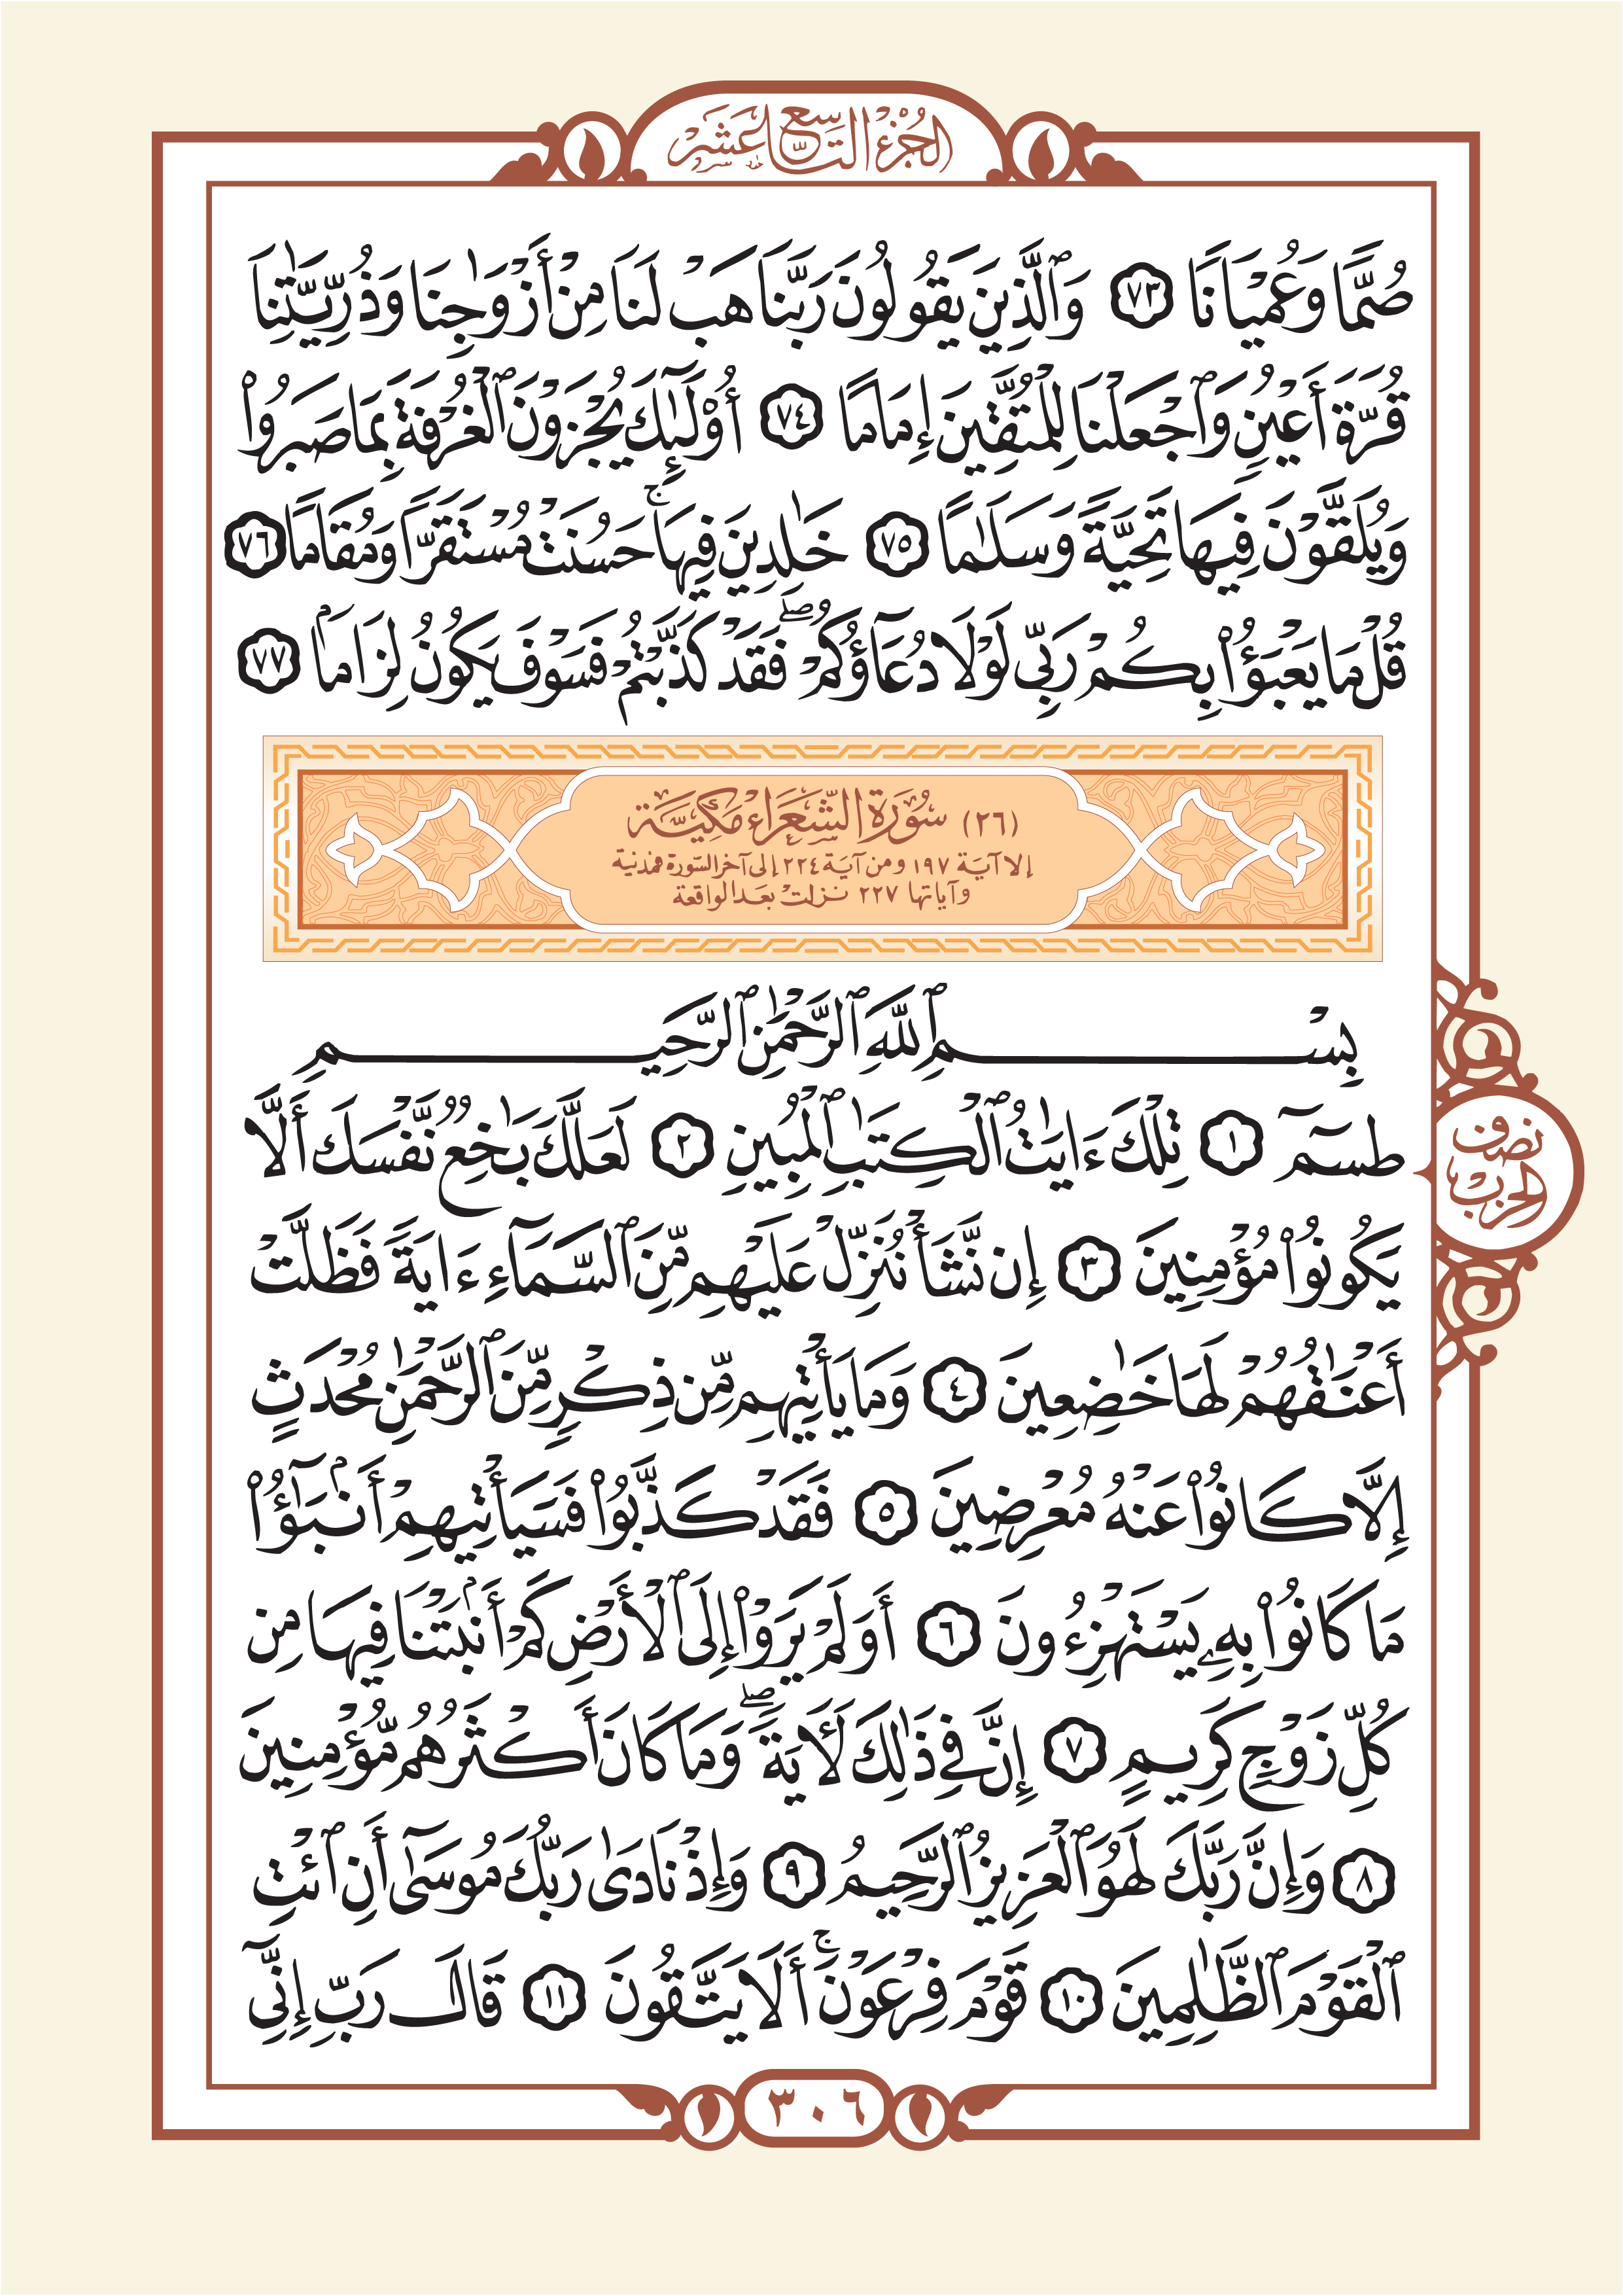 الجزء التاسع عشر
صُمًّا وَعُمْيَانًا ٧٣ وَٱلَّذِينَ يَقُولُونَ رَبَّنَا هَبْ لَنَا مِنْ أَزْوَٰجِنَا وَذُرِّيَّـٰتِنَا
قُرَّةَ أَعْيُنٍ وَٱجْعَلْنَا لِلْمُتَّقِينَ إِمَامًا ٧٤ أُوْلَـٰٓئِكَ يُجْزَوْنَ ٱلْغُرْفَةَ بِمَا صَبَرُوا۟
وَيُلَقَّوْنَ فِيهَا تَحِيَّةً وَسَلَـٰمًا ٧٥ خَـٰلِدِينَ فِيهَا ۚ حَسُنَتْ مُسْتَقَرًّا وَمُقَامًا ٧٦
قُلْ مَا يَعْبَؤُا۟ بِكُمْ رَبِّى لَوْلَا دُعَآؤُكُمْ ۖ فَقَدْ كَذَّبْتُمْ فَسَوْفَ يَكُونُ لِزَامًۢا ٧٧
(٢٦) سُورَة الشُّعَرَاء مَكِّيَّة
إلا آية ١٩٧ ومن آية ٢٢٤ إلى آخر السورة فمدنية
وآياتها ٢٢٧ نزلت بعد الواقعة
بِسْمِ ٱللَّهِ ٱلرَّحْمَـٰنِ ٱلرَّحِيمِ
طسٓمٓ ١ تِلْكَ ءَايَـٰتُ ٱلْكِتَـٰبِ ٱلْمُبِينِ ٢ لَعَلَّكَ بَـٰخِعٌ نَّفْسَكَ أَلَّا
نصف
الحزب
يَكُونُوا۟ مُؤْمِنِينَ ٣ إِن نَّشَأْ نُنَزِّلْ عَلَيْهِم مِّنَ ٱلسَّمَآءِ ءَايَةً فَظَلَّتْ
أَعْنَـٰقُهُمْ لَهَا خَـٰضِعِينَ ٤ وَمَا يَأْتِيهِم مِّن ذِكْرٍ مِّنَ ٱلرَّحْمَـٰنِ مُحْدَثٍ
إِلَّا كَانُوا۟ عَنْهُ مُعْرِضِينَ ٥ فَقَدْ كَذَّبُوا۟ فَسَيَأْتِيهِمْ أَنۢبَـٰٓؤُا۟
مَا كَانُوا۟ بِهِۦ يَسْتَهْزِءُونَ ٦ أَوَلَمْ يَرَوْا۟ إِلَى ٱلْأَرْضِ كَمْ أَنۢبَتْنَا فِيهَا مِن
كُلِّ زَوْجٍ كَرِيمٍ ٧ إِنَّ فِى ذَٰلِكَ لَـَٔايَةً ۖ وَمَا كَانَ أَكْثَرُهُم مُّؤْمِنِينَ
٨ وَإِنَّ رَبَّكَ لَهُوَ ٱلْعَزِيزُ ٱلرَّحِيمُ ٩ وَإِذْ نَادَىٰ رَبُّكَ مُوسَىٰٓ أَنِ ٱئْتِ
ٱلْقَوْمَ ٱلظَّـٰلِمِينَ ١٠ قَوْمَ فِرْعَوْنَ ۚ أَلَا يَتَّقُونَ ١١ قَالَ رَبِّ إِنِّىٓ
٣٠٦